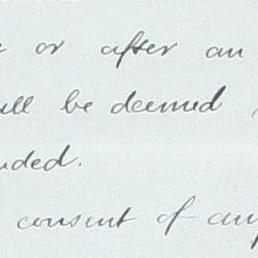 or after an
be deemed
consent of any